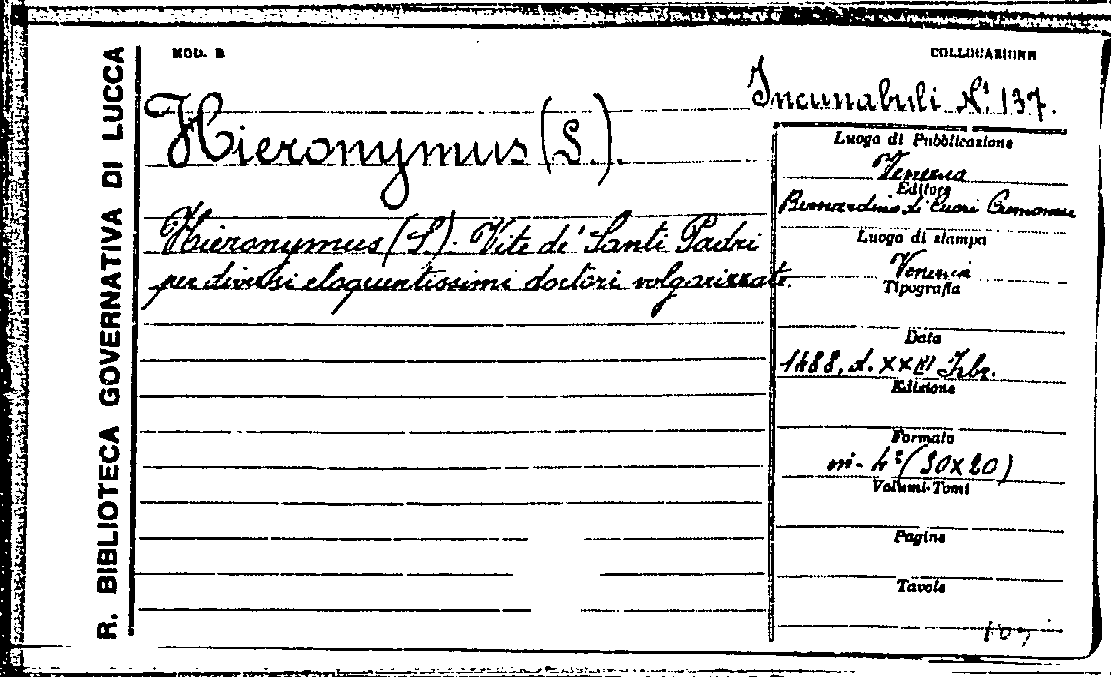 R. BIBLIOTECA GOVERNATIVA DI LUCCA
MOD. B
COLLOCAZIONE
Incunabuli N.° 137.
Hieronymus (S.).
Hieronymus (S.). Vite de' Santi Padri
per diversi eloquentissimi doctori volgarizzate.
Luogo di Pubblicazione
Venezia
Editore
Bernardino di Cuori Cremonese
Luogo di stampa
Venezia
Tipografia
Data
1488, d. XXIII Febr.
Edizione
Formato
in-4° (30x20)
Volumi-Tomi
Pagine
Tavole